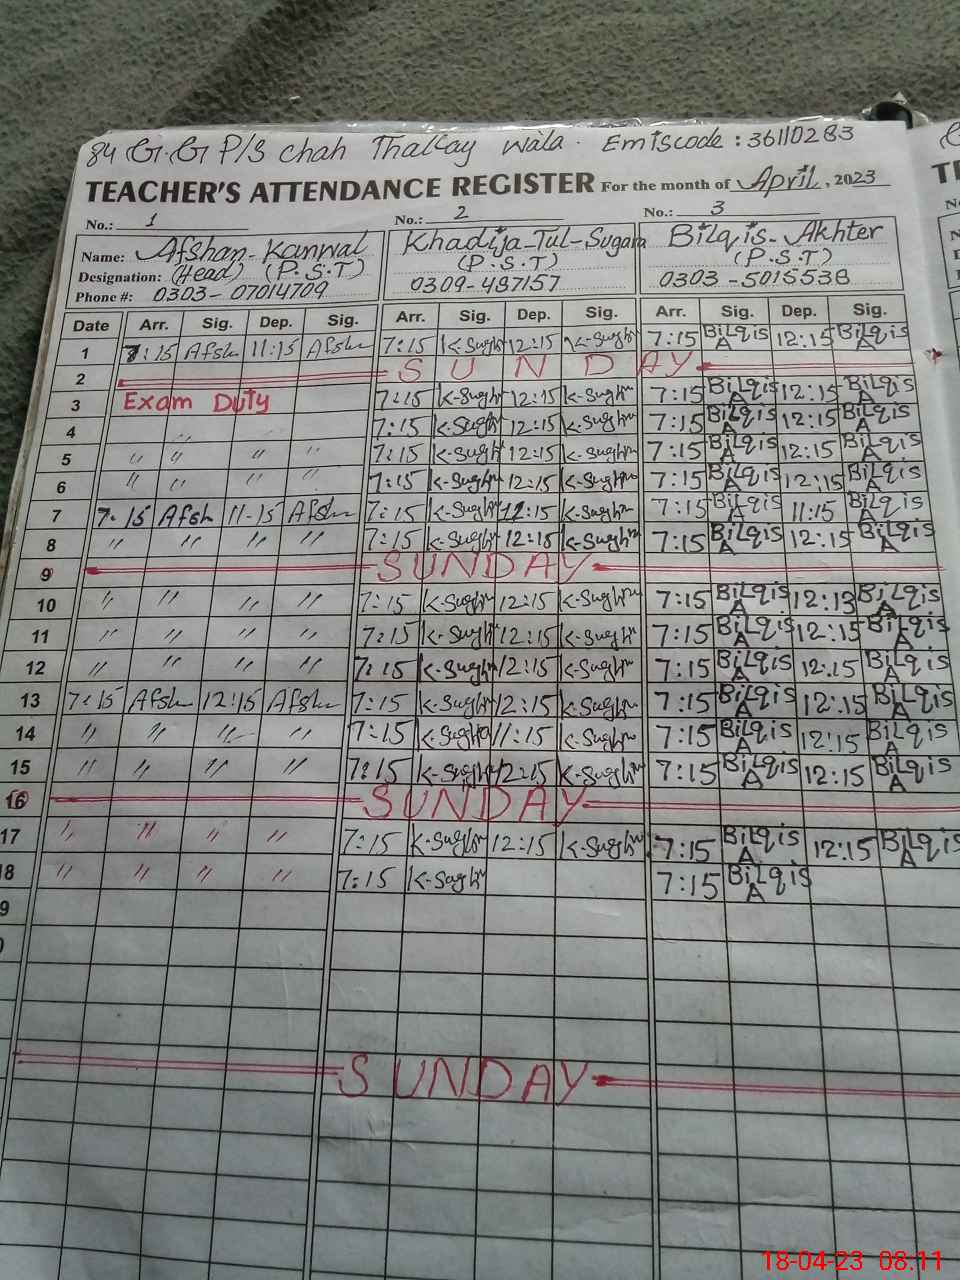 84 G.G P/S chah Thalkay wala. Emiscode : 36110283
TEACHER'S ATTENDANCE REGISTER For the month of April, 2023
No.: 1 No.: 2 No.: 3
Name: Afshan-Kanwal Khadija-Tul-Sugara Bilqis-Akhter
Designation: (Head) (P.S.T) (P.S.T) (P.S.T)
Phone #: 0303-07014709 0309-487157 0303-5015538
Date Arr. Sig. Dep. Sig. Arr. Sig. Dep. Sig. Arr. Sig. Dep. Sig.
1 7:15 Afsh 11:15 Afsh 7:15 K-Sughr 12:15 K-Sughr 7:15 BiLqis 12:15 BiLqis
2 SUNDAY
3 Exam Duty 7:15 K-Sughr 12:15 K-Sughr 7:15 BiLqis A 12:15 BiLqis A
4 〃 7:15 K-Sughr 12:15 K-Sughr 7:15 BiLqis A 12:15 BiLqis A
5 〃 〃 〃 〃 7:15 K-Sughr 12:15 K-Sughr 7:15 BiLqis A 12:15 BiLqis A
6 〃 〃 〃 〃 7:15 K-Sughr 12:15 K-Sughr 7:15 BiLqis A 12:15 BiLqis A
7 7:15 Afsh 11-15 Afsh 7:15 K-Sughr 12:15 K-Sughr 7:15 BiLqis A 11:15 BiLqis A
8 〃 〃 〃 〃 7:15 K-Sughr 12:15 K-Sughr 7:15 BiLqis A 12:15 BiLqis A
9 SUNDAY
10 〃 〃 〃 〃 7:15 K-Sughr 12:15 K-Sughr 7:15 BiLqis A 12:13 BiLqis A
11 〃 〃 〃 〃 7:15 K-Sughr 12:15 K-Sughr 7:15 BiLqis A 12:15 BiLqis A
12 〃 〃 〃 〃 7:15 K-Sughr 12:15 K-Sughr 7:15 BiLqis A 12:15 BiLqis A
13 7:15 Afsh 12:15 Afsh 7:15 K-Sughr 12:15 K-Sughr 7:15 BiLqis A 12:15 BiLqis A
14 〃 〃 〃 〃 7:15 K-Sughr 11:15 K-Sughr 7:15 BiLqis A 12:15 BiLqis A
15 〃 〃 〃 〃 7:15 K-Sughr 12:15 K-Sughr 7:15 BiLqis A 12:15 BiLqis A
16 SUNDAY
17 〃 〃 〃 〃 7:15 K-Sughr 12:15 K-Sughr 7:15 BiLqis A 12:15 BiLqis A
18 〃 〃 〃 〃 7:15 K-Sughr 7:15 BiLqis A
9
SUNDAY
18-04-23 08:11